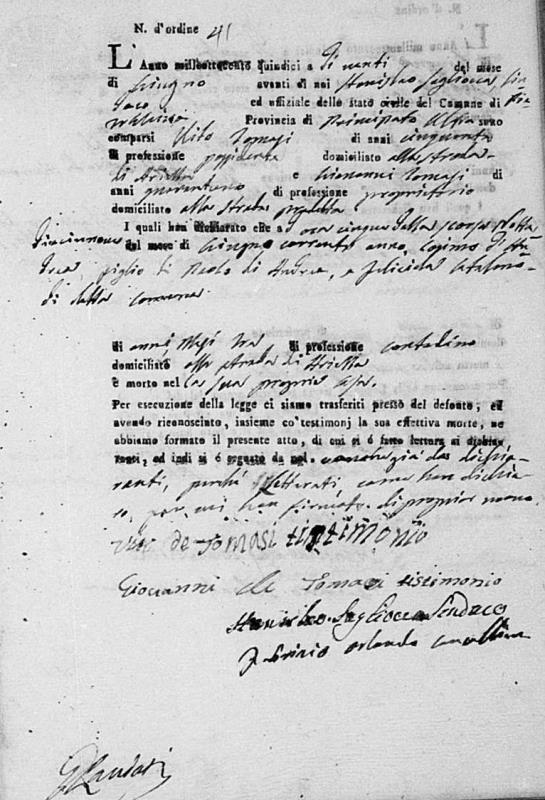 N. d'ordine 41
L'Anno milleottocento quindici a dì venti del mese
di Giugno avanti di noi Stanislao Saglioccca, Sin-
daco ed uffiziale dello stato civile del Comune di
Provincia di Principato Ultra sono
comparsi Vito Tomasi di anni cinquanta
di professione possidente domiciliato alla strada
di Arietta e Giovanni Tomasi di
anni quarantuno di professione proprietario
domiciliato alla strada
I quali han dichiarato che a ora cinque della scorsa Notte
diecinnove del mese di Giugno corrente anno, Cosimo d'An-
drea, figlio di Paolo di Andrea, e Felicida Catalano
di detta comune
di anni, Mesi tre di professione contadino
domiciliato alla strada di Arietta
è morto nel la sua propria casa.
Per esecuzione della legge ci siamo trasferiti presso del defonto, ed
avendo riconosciuto, insieme co' testimonj la sua effettiva morte, ne
abbiamo formato il presente atto, di cui si é fatto lettura ai dichia-
ranti, ed indi si é segnato da noi, dichia-
ranti, perché illetterati, come han dichia-
ro, per cui han firmato di proprio mano.
Vito de Tomasi tistimonio
Giovanni de Tomasi tistimonio
Stanislao Sagliocca Sindaco
Orlando cancelliere